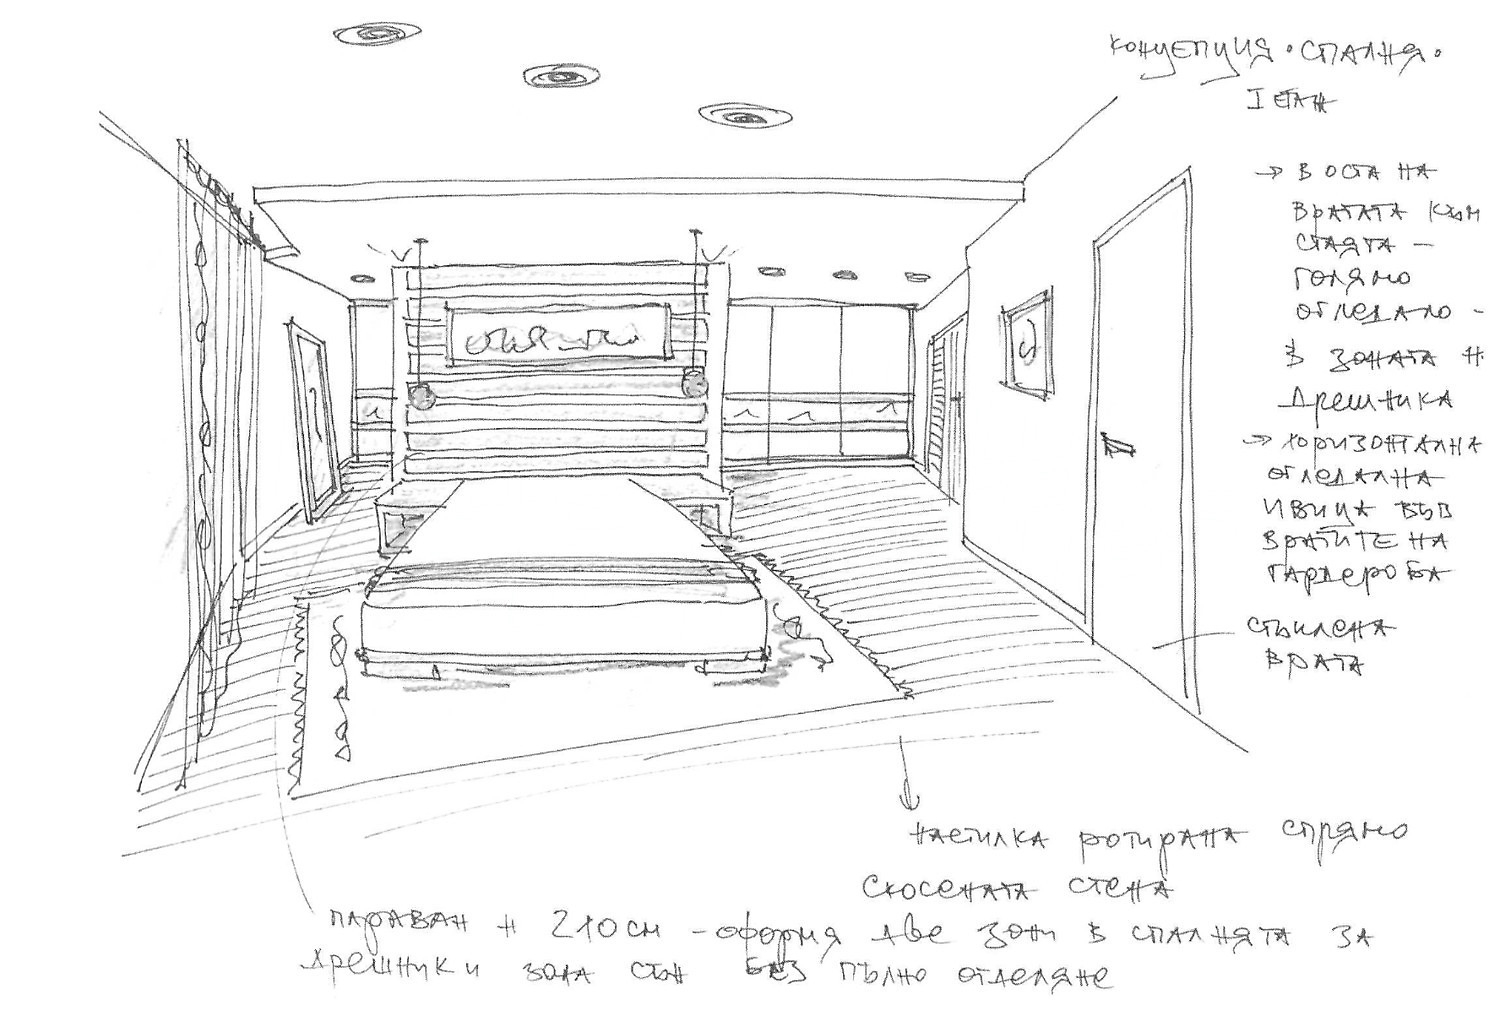 концепция • спалня •
I етаж
→ в оста на
вратата към
стаята –
голямо
огледало –
в зоната н
дрешника
→ хоризонтална
огледална
ивица във
вратите на
гардероба
стъклена
врата
настилка ротирана спрямо
скосената стена
параван H 210 см – оформя две зони в спалнята за
дрешник и зона сън без пълно отделяне